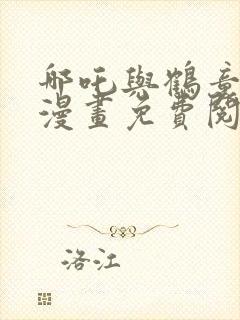 哪吒與鶴童
漫畫免費閱
洛江